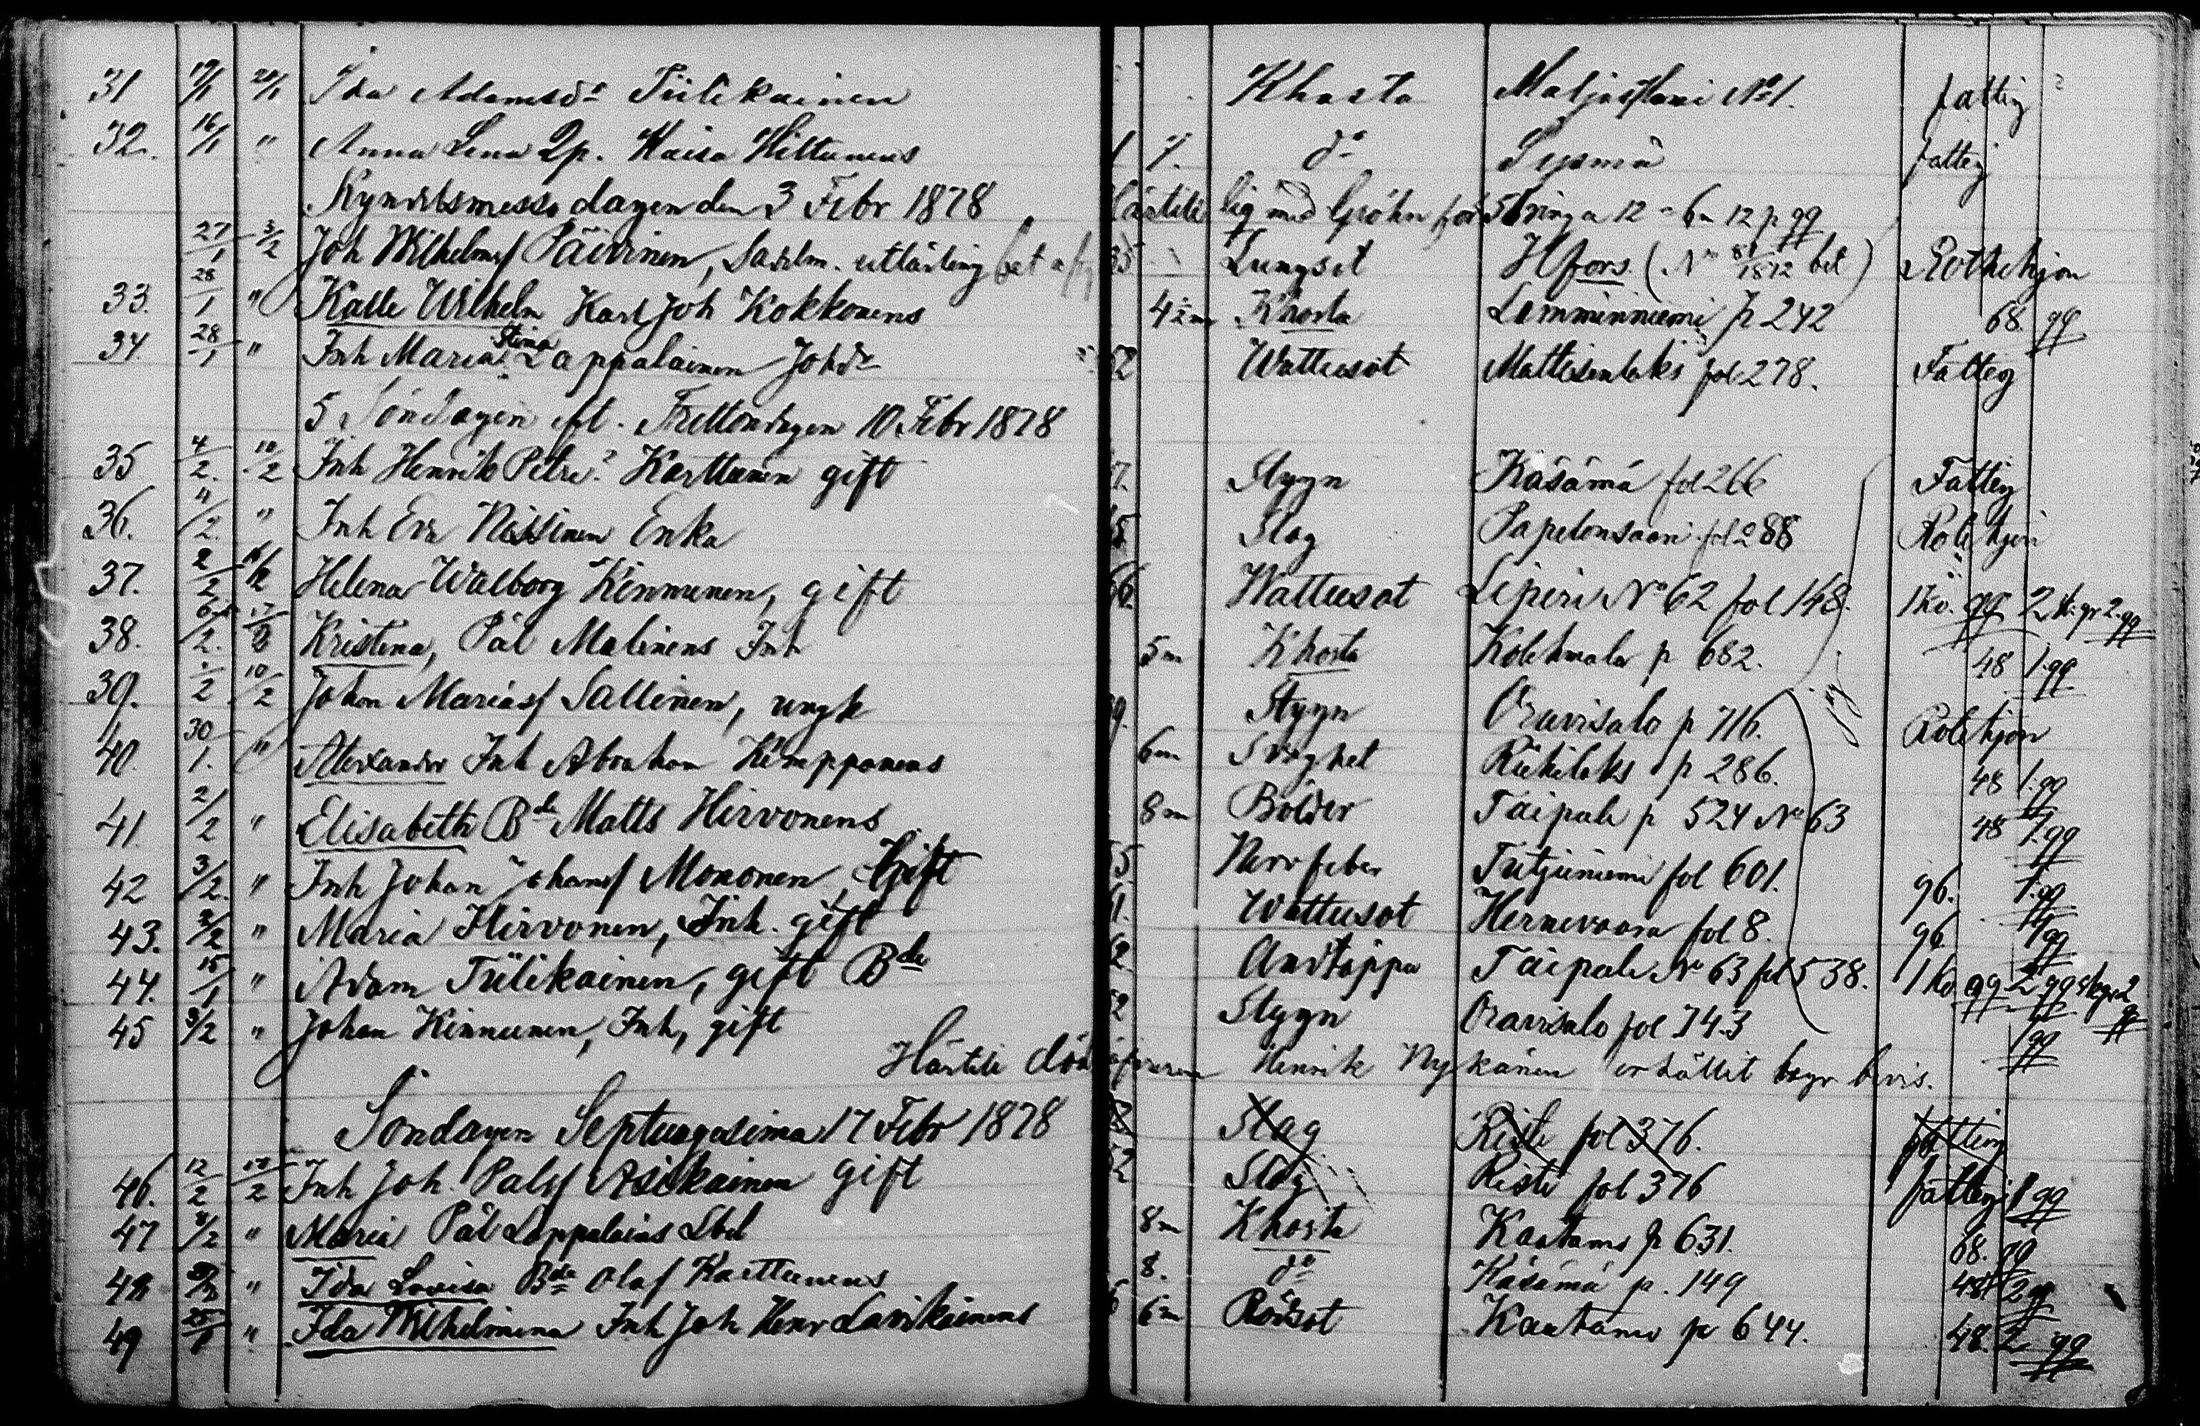 31 19/1 20/1 Ida Adamsdr Tiilikainen Khosta Maljasalmi No 1. fattig
32. 16/1 " Anna Lena Dp. Maisa Hiltunens 1 7. do Sysmä fattig
Kyndelsmesso dagen den 3 Febr 1878 lig med Gröhn för Stringa 12 - 6m 12 p gg
27/1 3/2 Joh Wilhelmsf Päivinen, Sadelm. utlärling 35 Lungsot Hfors. (No 1812 bet) Rothehjon
33. 28/1 " Kalle Wilhelm Karl Joh Kokkonens 4½m Khosta Lamminniemi p 242 68 gg
34 28/1 " Inh Maria Stina Lappalainen Johdr 52 Wattusot Mattisenlaks fol 278. Fattig
5 Söndagen eft. Trettondagen 10 Febr 1878
35 4/2. 10/2 Inh Henrik Petri Karttunen gift 7. Stygn Käsämä fol 266 Fattig
36. 4/2. " Inh Eva Nissinen Enka 5 Slag Papelonsaari fol 288 Rotehjon
37. 2/2 Helena Walborg Kinnunen, gift 66. Wattusot Liperi No 62 fol 148. 1 ko. gg 2 st. gr 2. gg
38. 6/2. 17/2 Kristina, Pål Malinens Inh 5m Khosta Kolehmala p 682. 48 1. gg
39. 1/2 10/2 Johan Mariasf Sallinen, ungk 9. Stygn Oravisalo p 716. Rotehjon
40. 30/1. " Alexander Inh Abraham Kimpponens 6m Svaghet Riikilaks p 286. 48 1. gg
41. 2/2 " Elisabeth Bde Matts Hirvonens 8m Bölder Taipale p 524 No 63 48 1. gg
42 3/2. " Inh Johan Johansf Mononen, Gift 55 Nervfeber Tutjuniemi fol 601. 96. 1. gg
43. 3/2 " Maria Hirvonen, Inh. gift 1. Wattusot Hernevaara fol 8. 96 1 gg
44. 15/1 " Adam Tiilikainen, gift Bde 2 Andtäppa Taipale No 63 fol 538. 1 ko gg 2 gg st gr 2 gg
45 3/2 " Johan Kinnunen, Inh, gift 52 Stygn Oravisalo fol 743 1 gg
Härtill Henrik Nykänen erhållit begr bevis.
Söndagen Septuagesima 17 Febr 1878 Slag Riste fol 376. fattig
46. 12/2 17/2 Inh Joh. Palsf Asikainen gift 52 Slag Riste fol 376 fattig 1 gg
47 8/2 " Maria Pål Lappalains Lbd 8m Khosta Kaatamo p 631. 68. gg
48 " Ida Lovisa Bde Olof Karttunens 8. do Käsämä p. 149 48 2 gg
49 25/1 " Ida Wilhelmina Inh Joh Henr Lavikainens 6m Rödsot Kaatamo p 644. 48. 2 gg